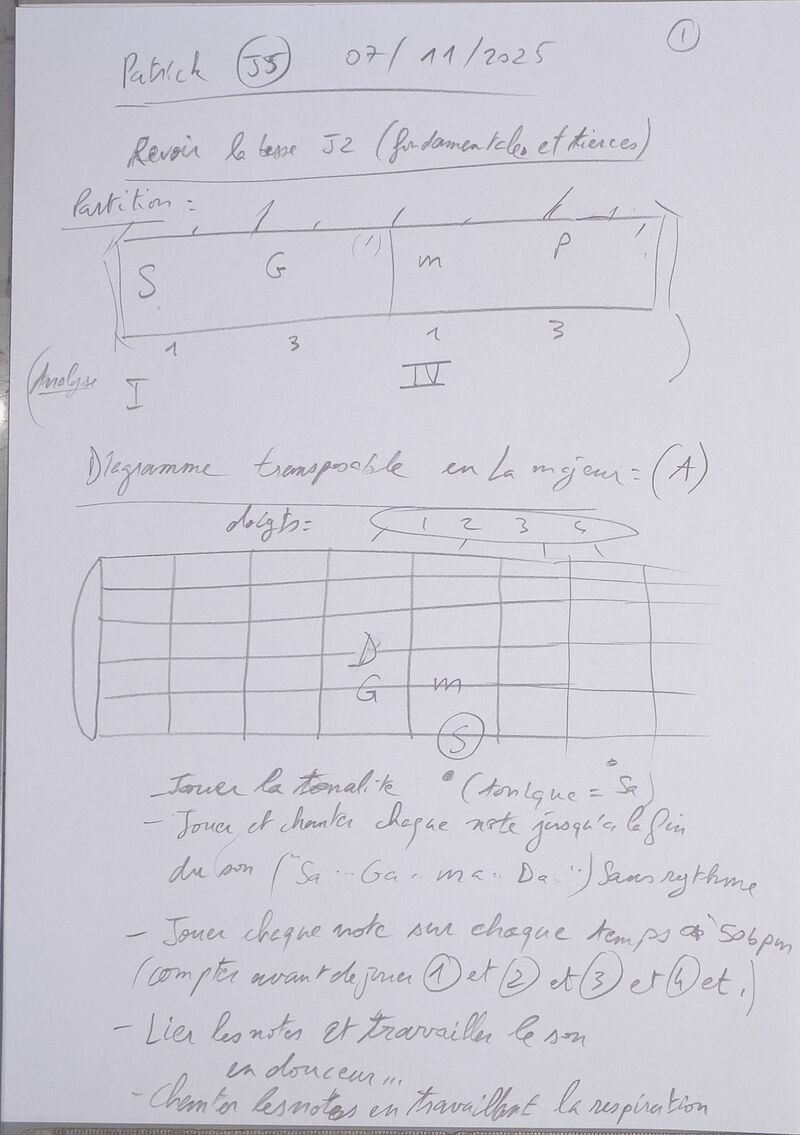 1
Patrick J5 07/11/2025
Revoir la basse J2 (fundamentales et tierces)
Partition :
S G (') m P
1 3 1 3
(Analyse I IV )
Diagramme transposable en La majeur = (A)
doigts = 1 2 3 4
D
G m
S
- Jouer la tonalite (tonique = Sa)
- Jouer et chanter chaque note jusqu'a la fin
du son ("Sa... Ga.. ma.. Da..") Sans rythme
- Jouer chaque note sur chaque temps à 50bpm
(compter avant de jouer 1 et 2 et 3 et 4 et.)
- Lier les notes et travailler le son
en douceur...
- Chanter les notes en travaillant la respiration